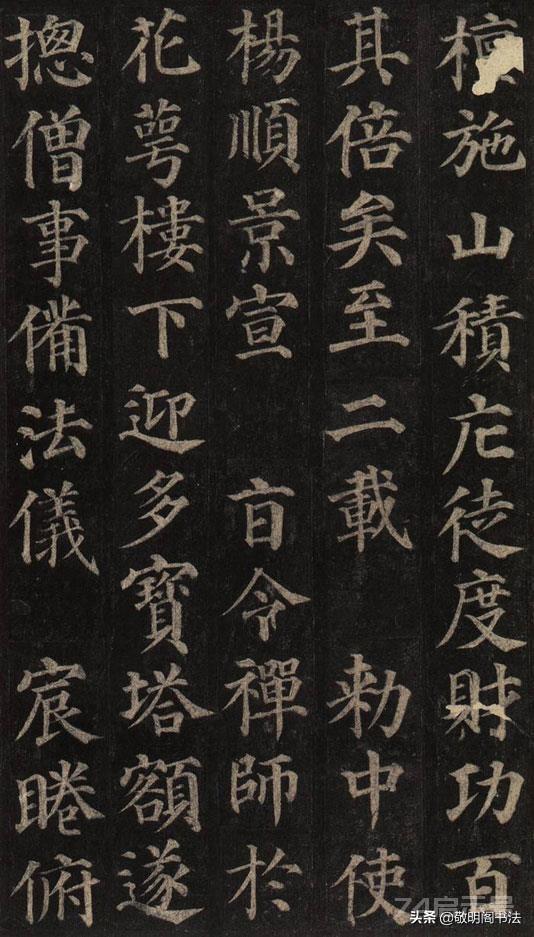 檀施山積庀徒度財功百
其倍矣至二載　勑中使
楊順景宣　旨令禪師於
花萼樓下迎多寶塔額遂
摠僧事備法儀　宸睠俯
头条 @敬明阁书法